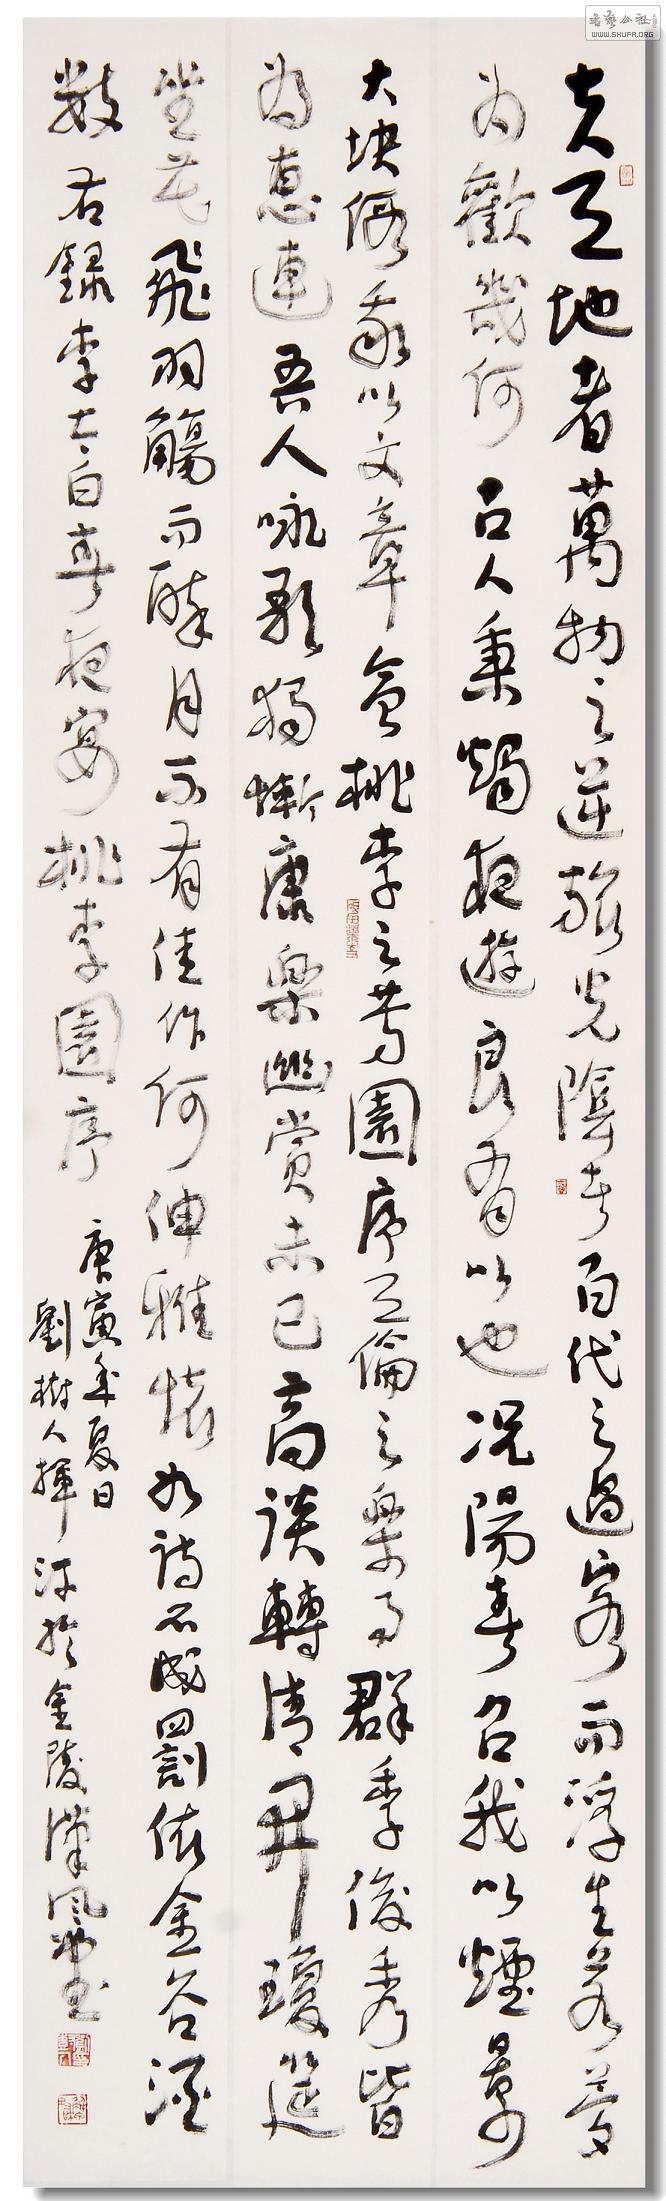 夫天地者萬物之逆旅光陰者百代之過客而浮生若夢
為歡幾何古人秉燭夜遊良有以也況陽春召我以煙景
大塊假我以文章會桃李之芳園序天倫之樂事群季俊秀皆
為惠連吾人咏歌獨慚康樂幽賞未已高談轉清開瓊筵
坐花飛羽觴而醉月不有佳作何伸雅懷如詩不成罰依金谷酒
數右錄李太白春夜宴桃李園序
庚寅年夏日
劉樹人揮汗於金陵漢風堂
書藝公社
WWW.SHUFA.ORG